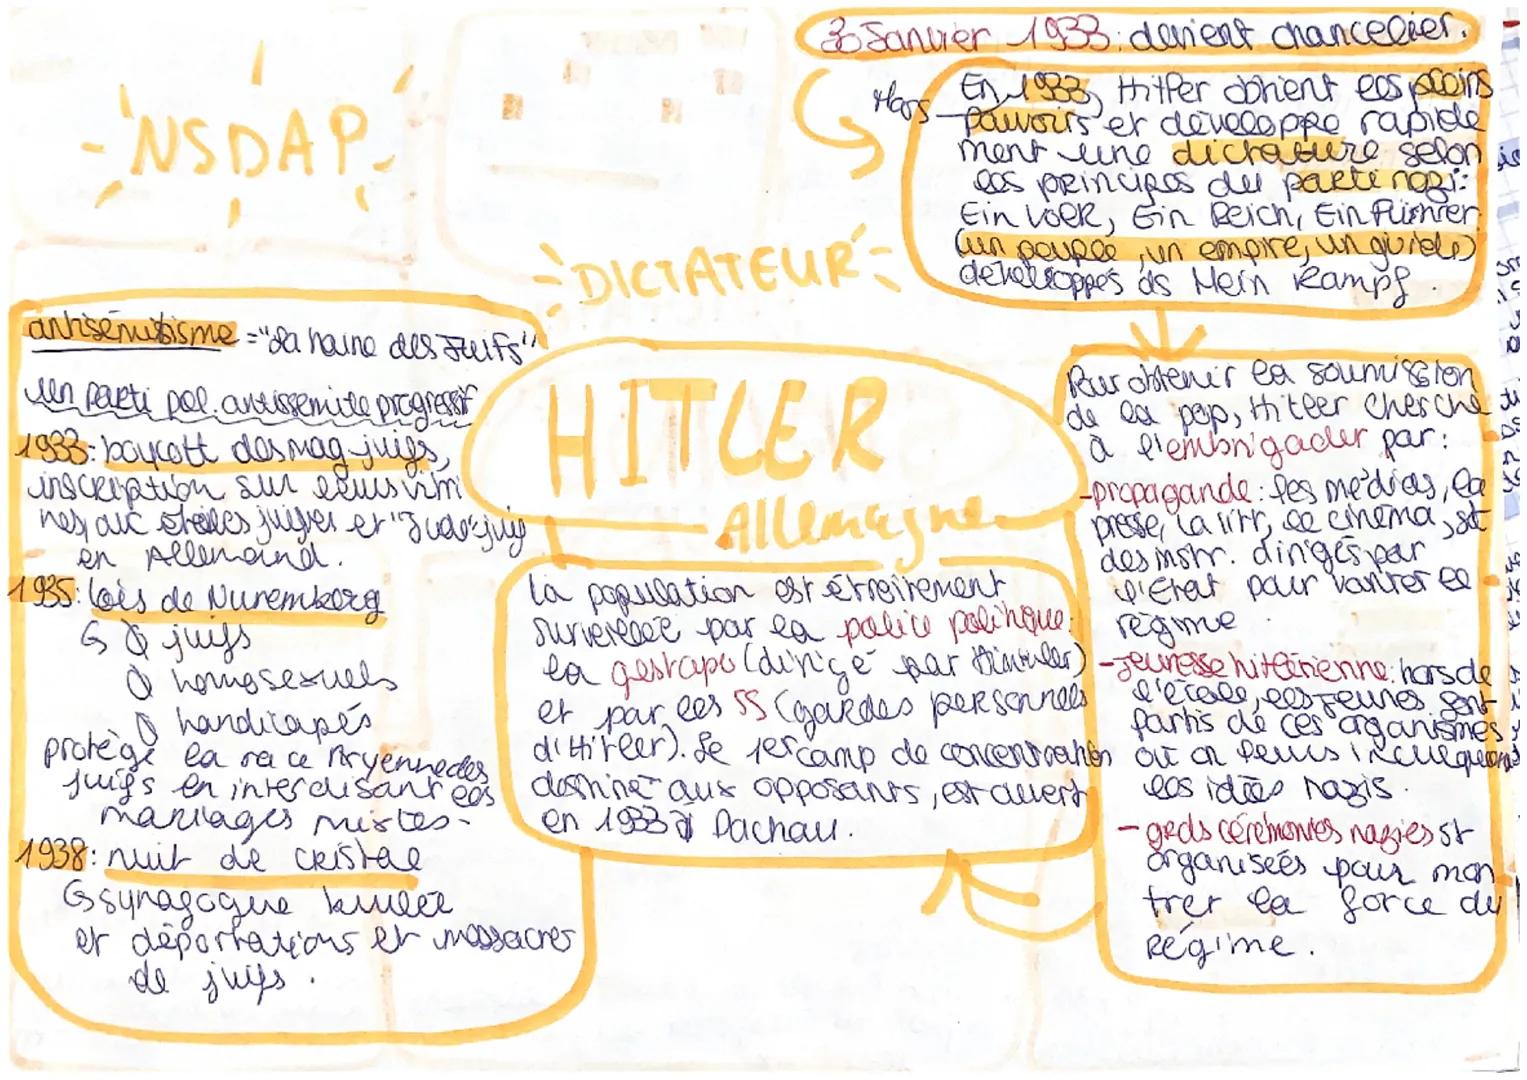 30 Janvier 1933 : devient chancelier.
Mars
En 1933, Hitler obtient les pleins
pouvoirs et développe rapide
ment une dictature selon
les principes du parti nazi:
Ein Volk, Ein Reich, Ein Führer
(un peuple, un empire, un guide)
développés ds Mein Kampf.
- NSDAP -
- DICTATEUR -
HITLER
Allemagne
antisémitisme = "la haine des Juifs"
Un parti pol. antissemite progressif
1933: boycott des mag. juifs,
inscription sur leurs vitri
nes, aux étoiles juives et "Juda" juif
en Allemand.
1935: lois de Nuremberg
juifs
homosexuels
handicapés
protège la race Aryenne des
juifs en interdisant les
mariages mixtes.
1938: nuit de cristal
synagogue brulée
et déportations et massacres
de juifs.
La population est étroitement
surveillée par la police politique:
la gestapo (dirigé par Himmler)
et par les SS (gardes personnels
d'Hitler). Le 1er camp de concentration
destiné aux opposants, est ouvert
en 1933 à Dachau.
Pour obtenir la soumission
de la pop, Hitler cherche
à l'embrigader par:
- propagande: les médias, la
presse, la litt, le cinéma, st
des instr. dirigés par
l'Etat pour vanter le
régime.
- jeunesse hitlérienne: hors de
l'école, les jeunes font
partis de ces organismes
où on leurs inculquent
les idées nazis.
- grds cérémonies nazies st
organiseés pour mon
trer la force du
Régime.